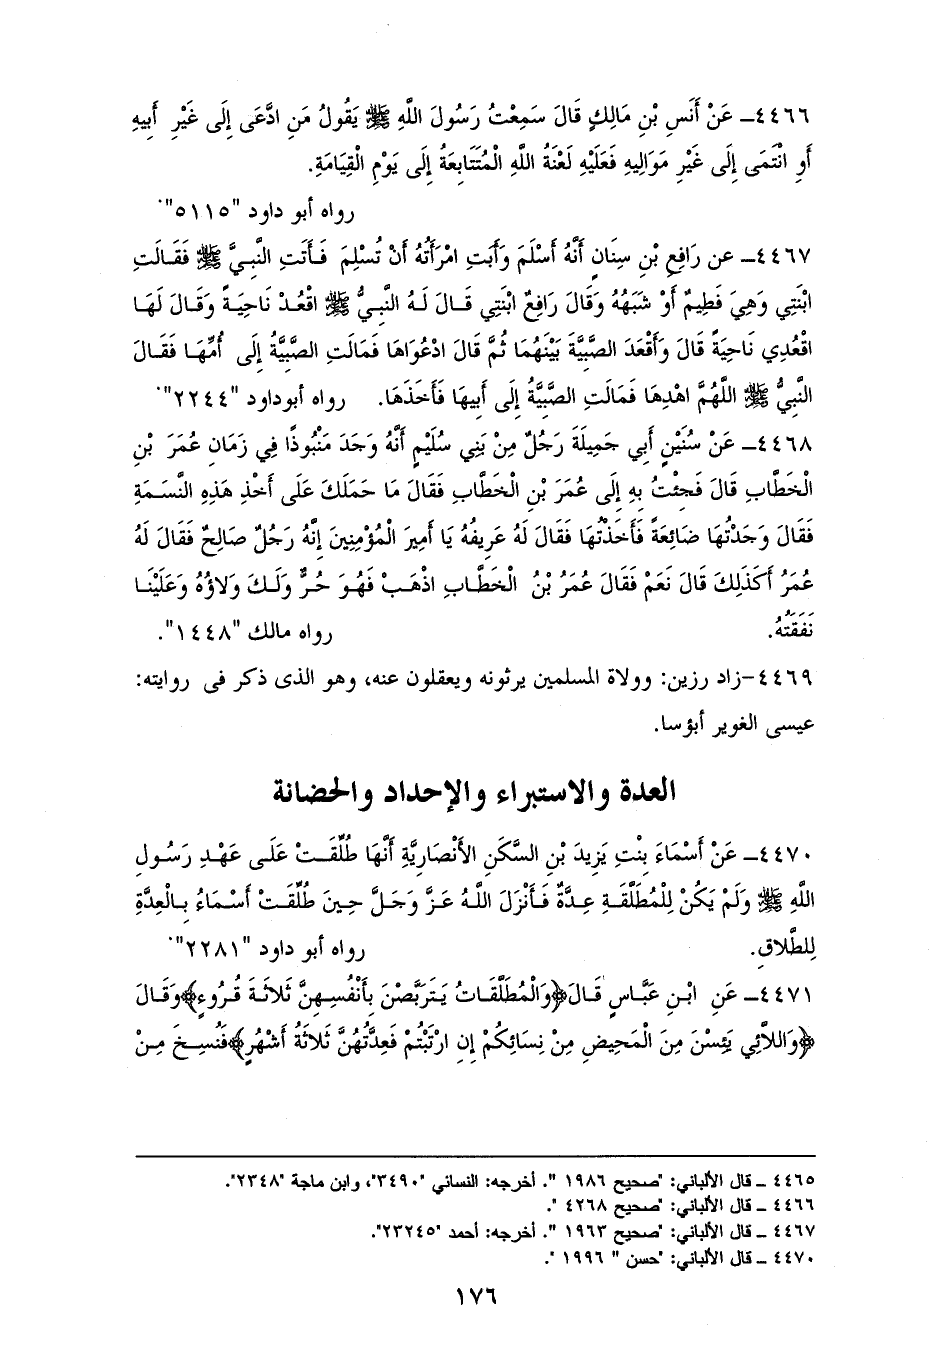 ٤٤٦٦ـ عَنْ أَنَسِ بْنِ مَالِكٍ قَالَ سَمِعْتُ رَسُولَ اللَّهِ ﷺ يَقُولُ مَنِ ادَّعَى إِلَى غَيْرِ أَبِيهِ
أَوِ انْتَمَى إِلَى غَيْرِ مَوَالِيهِ فَعَلَيْهِ لَعْنَةُ اللَّهِ الْمُتَتَابِعَةُ إِلَى يَوْمِ الْقِيَامَةِ.
رواه أبو داود "٥١١٥".
٤٤٦٧ـ عن رَافِعِ بْنِ سِنَانٍ أَنَّهُ أَسْلَمَ وَأَبَتِ امْرَأَتُهُ أَنْ تُسْلِمَ فَأَتَتِ النَّبِيَّ ﷺ فَقَالَتِ
ابْنَتِي وَهِيَ فَطِيمٌ أَوْ شَبَهُهُ وَقَالَ رَافِعٌ ابْنَتِي قَالَ لَهُ النَّبِيُّ ﷺ اقْعُدْ نَاحِيَةً وَقَالَ لَهَا
اقْعُدِي نَاحِيَةً قَالَ وَأَقْعَدَ الصَّبِيَّةَ بَيْنَهُمَا ثُمَّ قَالَ ادْعُوَاهَا فَمَالَتِ الصَّبِيَّةُ إِلَى أُمِّهَا فَقَالَ
النَّبِيُّ ﷺ اللَّهُمَّ اهْدِهَا فَمَالَتِ الصَّبِيَّةُ إِلَى أَبِيهَا فَأَخَذَهَا. رواه أبوداود "٢٢٤٤".
٤٤٦٨ـ عَنْ سُنَيْنٍ أَبِي جَمِيلَةَ رَجُلٌ مِنْ بَنِي سُلَيْمٍ أَنَّهُ وَجَدَ مَنْبُوذًا فِي زَمَانِ عُمَرَ بْنِ
الْخَطَّابِ قَالَ فَجِئْتُ بِهِ إِلَى عُمَرَ بْنِ الْخَطَّابِ فَقَالَ مَا حَمَلَكَ عَلَى أَخْذِ هَذِهِ النَّسَمَةِ
فَقَالَ وَجَدْتُهَا ضَائِعَةً فَأَخَذْتُهَا فَقَالَ لَهُ عَرِيفُهُ يَا أَمِيرَ الْمُؤْمِنِينَ إِنَّهُ رَجُلٌ صَالِحٌ فَقَالَ لَهُ
عُمَرُ أَكَذَلِكَ قَالَ نَعَمْ فَقَالَ عُمَرُ بْنُ الْخَطَّابِ اذْهَبْ فَهُوَ حُرٌّ وَلَكَ وَلاَؤُهُ وَعَلَيْنَا
نَفَقَتُهُ. رواه مالك "١٤٤٨".
٤٤٦٩-زاد رزين: وولاة المسلمين يرثونه ويعقلون عنه، وهو الذى ذكر فى روايته:
عيسى الغوير أبؤسا.
العدة والاستبراء والإحداد والحضانة
٤٤٧٠ـ عَنْ أَسْمَاءَ بِنْتِ يَزِيدَ بْنِ السَّكَنِ الأَنْصَارِيَّةِ أَنَّهَا طُلِّقَتْ عَلَى عَهْدِ رَسُولِ
اللَّهِ ﷺ وَلَمْ يَكُنْ لِلْمُطَلَّقَةِ عِدَّةٌ فَأَنْزَلَ اللَّهُ عَزَّ وَجَلَّ حِينَ طُلِّقَتْ أَسْمَاءُ بِالْعِدَّةِ
لِلطَّلاَقِ. رواه أبو داود "٢٢٨١".
٤٤٧١ـ عَنِ ابْنِ عَبَّاسٍ قَالَ﴿وَالْمُطَلَّقَاتُ يَتَرَبَّصْنَ بِأَنْفُسِهِنَّ ثَلاَثَةَ قُرُوءٍ﴾وَقَالَ
﴿وَاللاَّئِي يَئِسْنَ مِنَ الْمَحِيضِ مِنْ نِسَائِكُمْ إِنِ ارْتَبْتُمْ فَعِدَّتُهُنَّ ثَلاَثَةُ أَشْهُرٍ﴾فَنُسِخَ مِنْ
٤٤٦٥ ـ قال الألباني: "صحيح ١٩٨٦ ". أخرجه: النسائي "٣٤٩٠"، وابن ماجة "٢٣٤٨".
٤٤٦٦ ـ قال الألباني: "صحيح ٤٢٦٨ ".
٤٤٦٧ ـ قال الألباني: "صحيح ١٩٦٣ ". أخرجه: أحمد "٢٣٢٤٥".
٤٤٧٠ ـ قال الألباني: "حسن " ١٩٩٦ ".
١٧٦